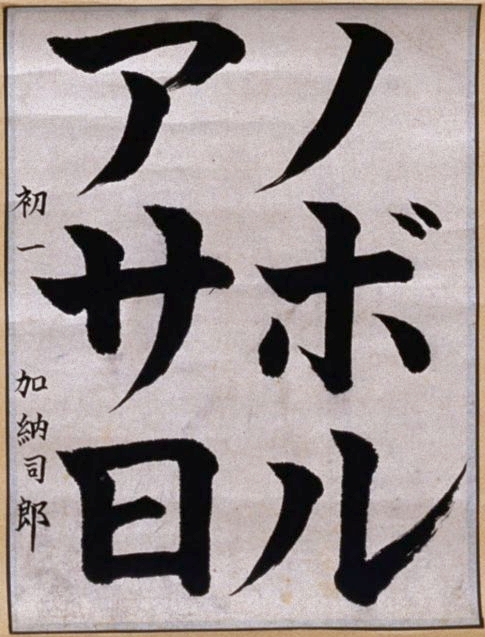 ノボル
アサ日
初一 加納司郎